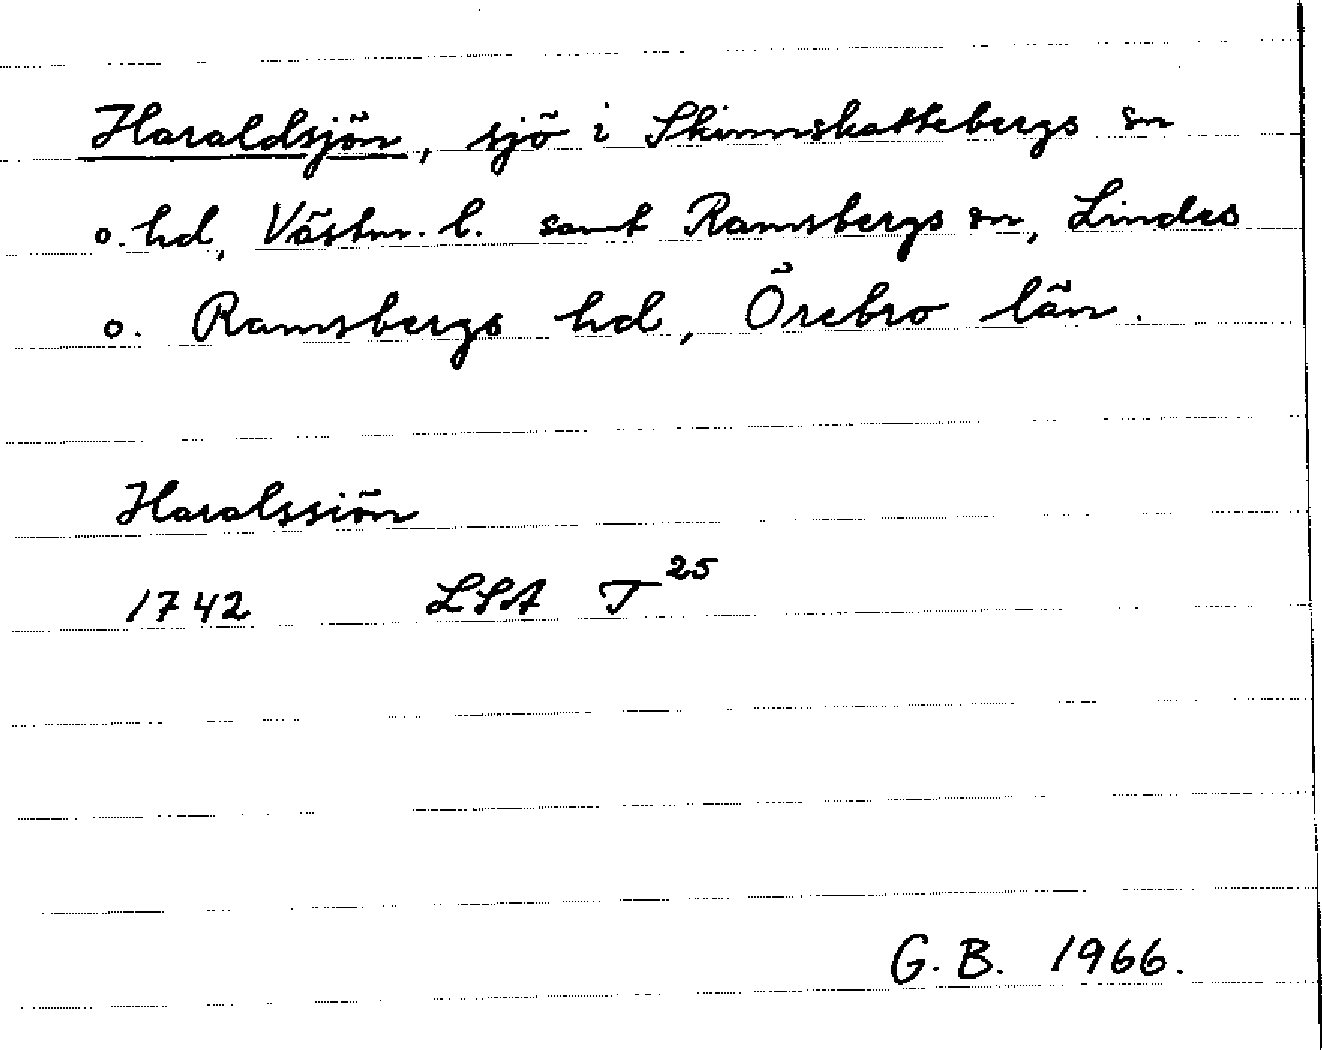 Haraldsjön, sjö i Skinnskattebergs sn
o. hd, Västm. l. samt Ramsbergs sn, Lindes
o. Ramsbergs hd, Örebro län.
Haralssiön
1742 LSA T 25
G. B. 1966.